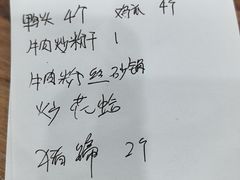 鸭头 4个 鸡爪 4个
牛肉炒粉干 1
牛肉粉丝砂锅
炒花蛤
猪蹄 2个